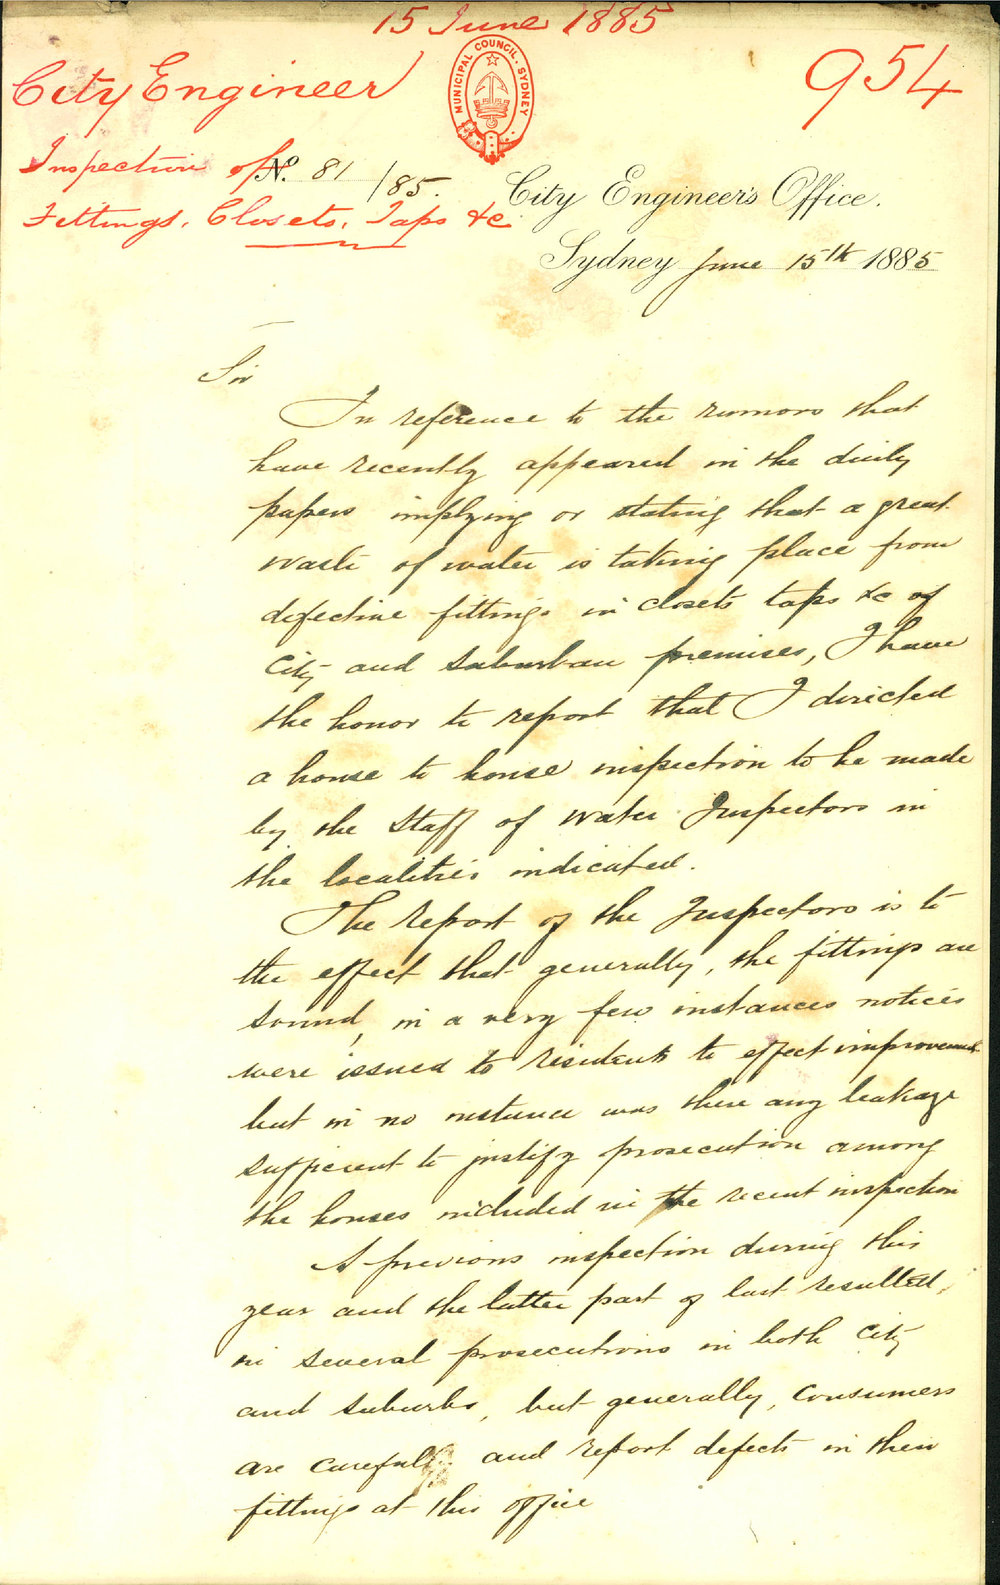 15 June 1885
City Engineer
954
MUNICIPAL COUNCIL. SYDNEY
Inspection of
No. 81/85.
Fittings, Closets, Taps &c
City Engineer's Office.
Sydney June 15th 1885
Sir
In reference to the rumors that
have recently appeared in the daily
papers implying or stating that a great
waste of water is taking place from
defective fittings in closets taps &c of
City and Suburban premises, I have
the honor to report that I directed
a house to house inspection to be made
by the Staff of Water Inspectors in
the localities indicated.
The report of the Inspectors is to
the effect that generally, the fittings are
sound, in a very few instances notices
were issued to residents to effect improvement
but in no instance was there any leakage
sufficient to justify prosecution among
the houses included in the recent inspection
A previous inspection during this
year and the latter part of last resulted,
in several prosecutions in both City
and suburbs, but generally, consumers
are careful and report defects in their
fittings at this office